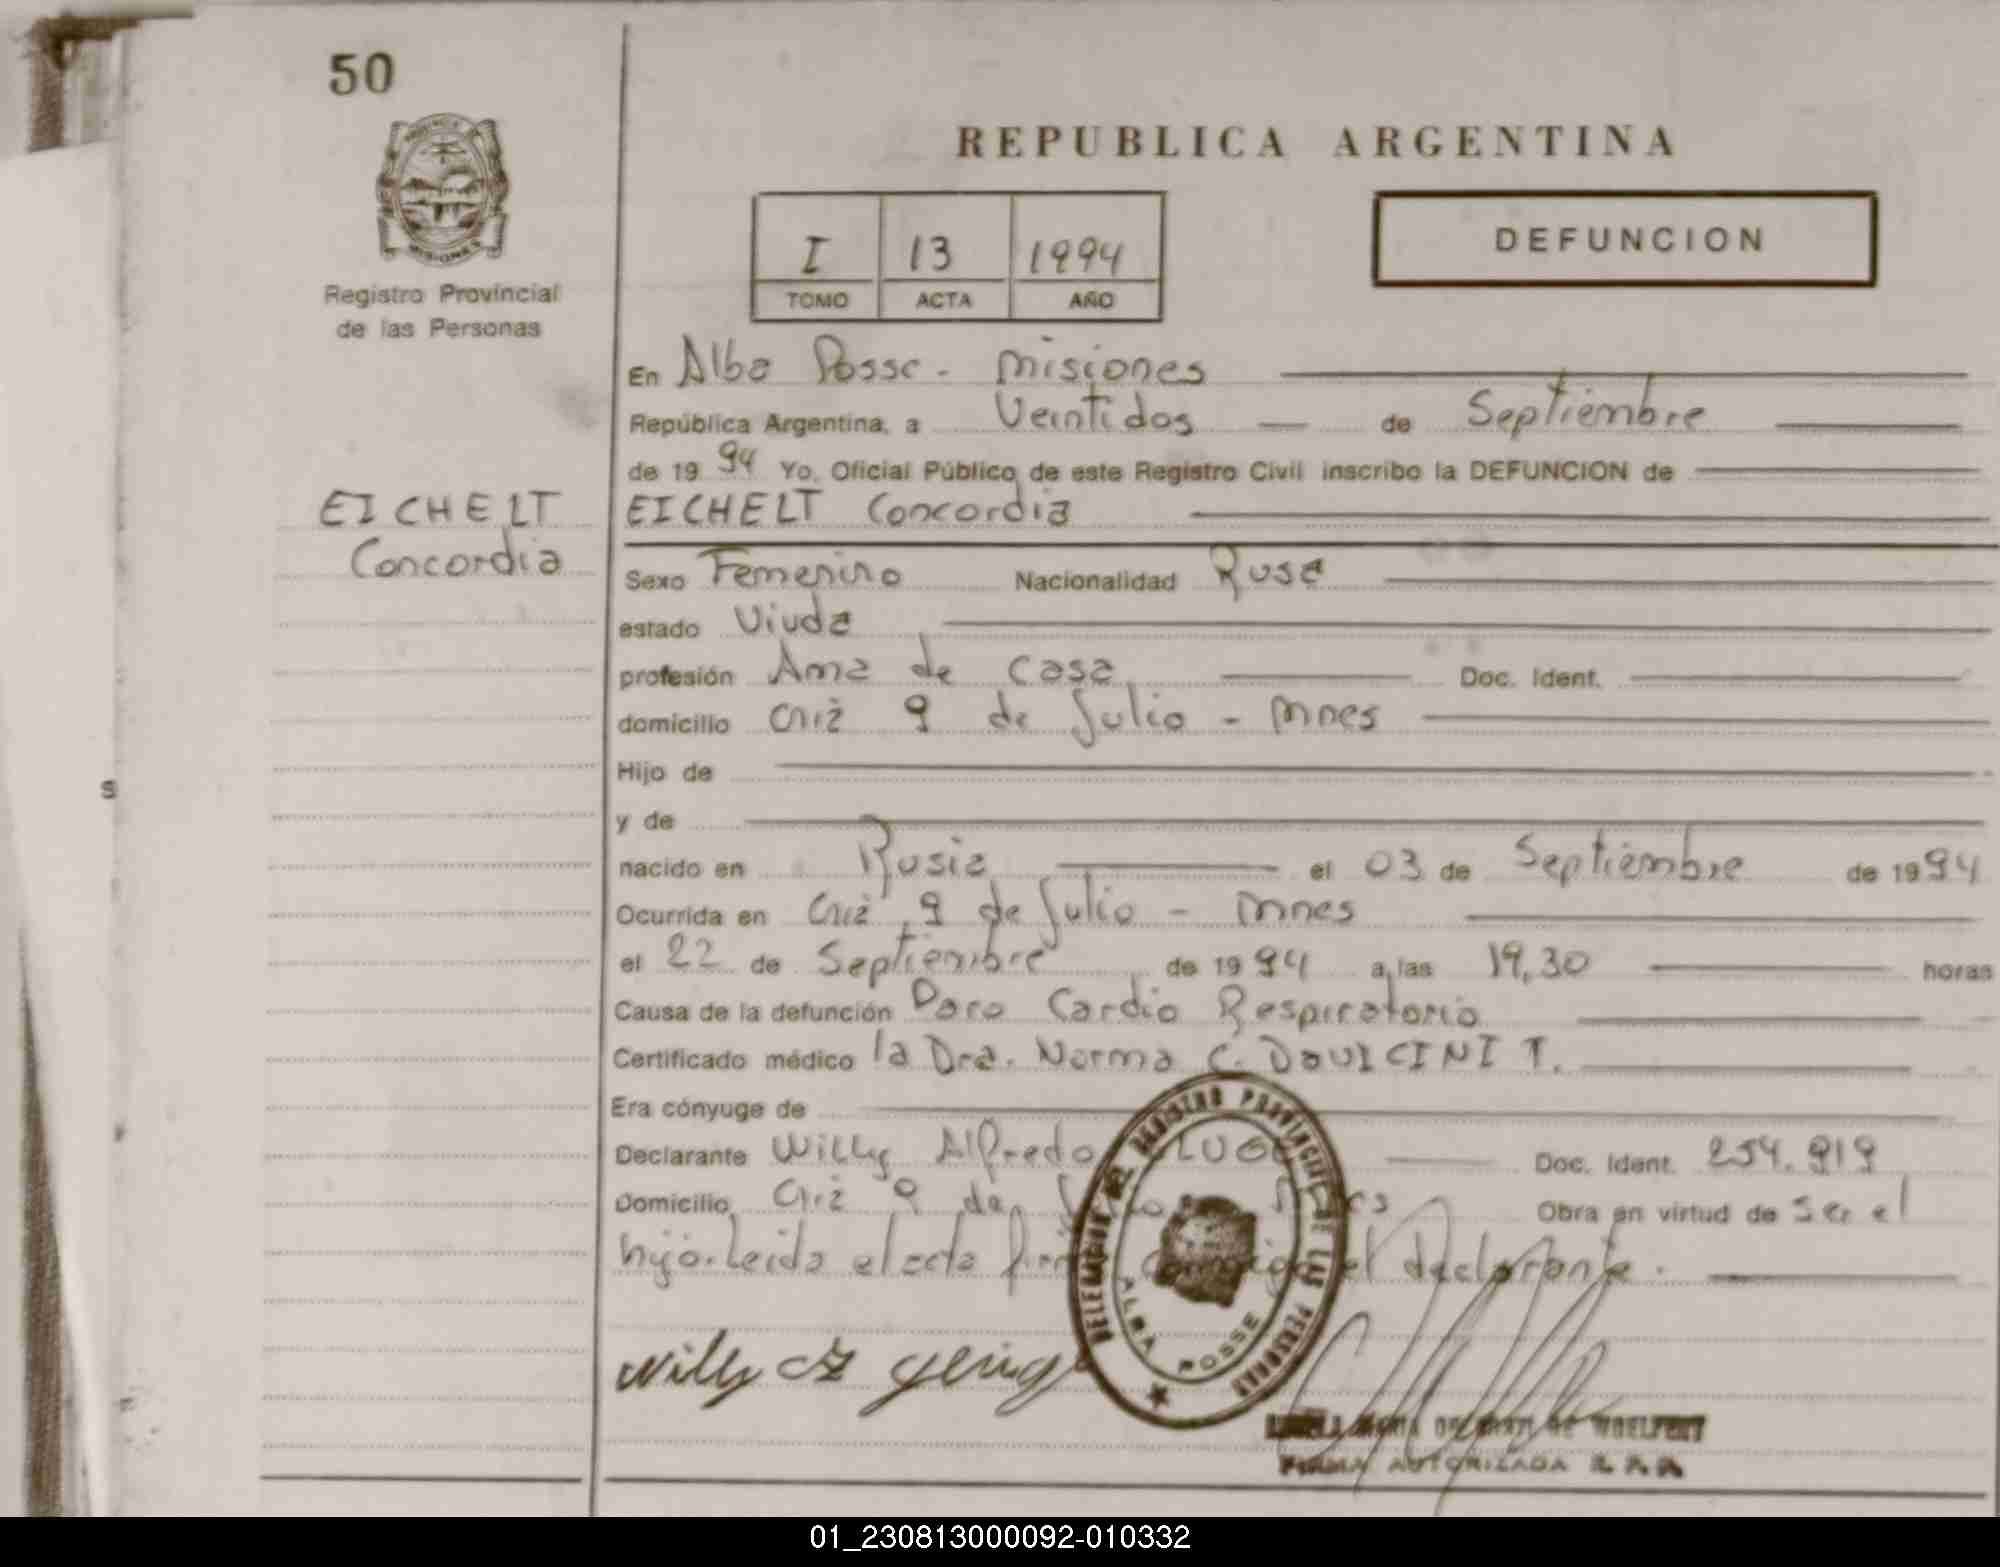 50
REPUBLICA ARGENTINA
DEFUNCION
I 13 1994
TOMO ACTA AÑO
Registro Provincial
de las Personas
En Alba Posse - Misiones
República Argentina, a Veintidos — de Septiembre
de 1994 Yo, Oficial Público de este Registro Civil inscribo la DEFUNCION de
EICHELT
Concordia
EICHELT Concordia
Sexo Femenino Nacionalidad Rusa
estado Viuda
profesión Ama de Casa Doc. Ident.
domicilio 9 de Julio - Mnes
Hijo de
y de
nacido en Rusia el 03 de Septiembre de 1994
Ocurrida en 9 de Julio - Mnes
el 22 de Septiembre de 1994 a las 19,30 horas
Causa de la defunción Paro Cardio Respiratorio
Certificado médico la Dra. Norma C. DOULCINI T.
Era cónyuge de
Declarante Willy Alfredo Doc. Ident. 254.919
Domicilio 9 de Obra en virtud de Ser el
hijo. Leida el acta el Declarante.
DELEGACION DEL REGISTRO PROVINCIAL DE LAS PERSONAS
ALBA POSSE
Willy
FIRMA AUTORIZADA R. P. P.
01_230813000092-010332